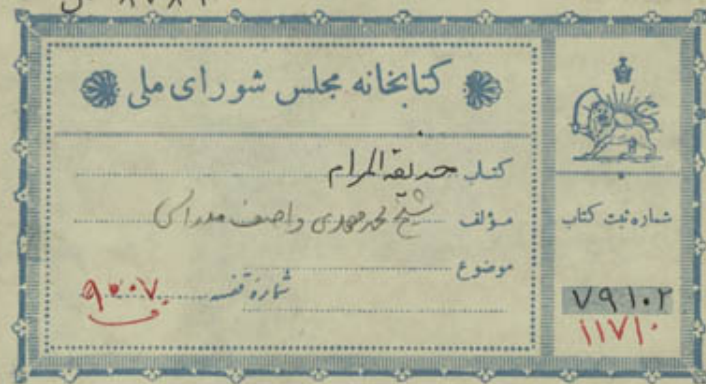 کتابخانه مجلس شورای ملی
کتاب حدیقة المرام
مؤلف شیخ محمد مهدی واصف مدراسی
موضوع
شماره قفسه ۹۳۰۷
شماره ثبت کتاب
۷۹۱۰۲
۱۱۷۱۰